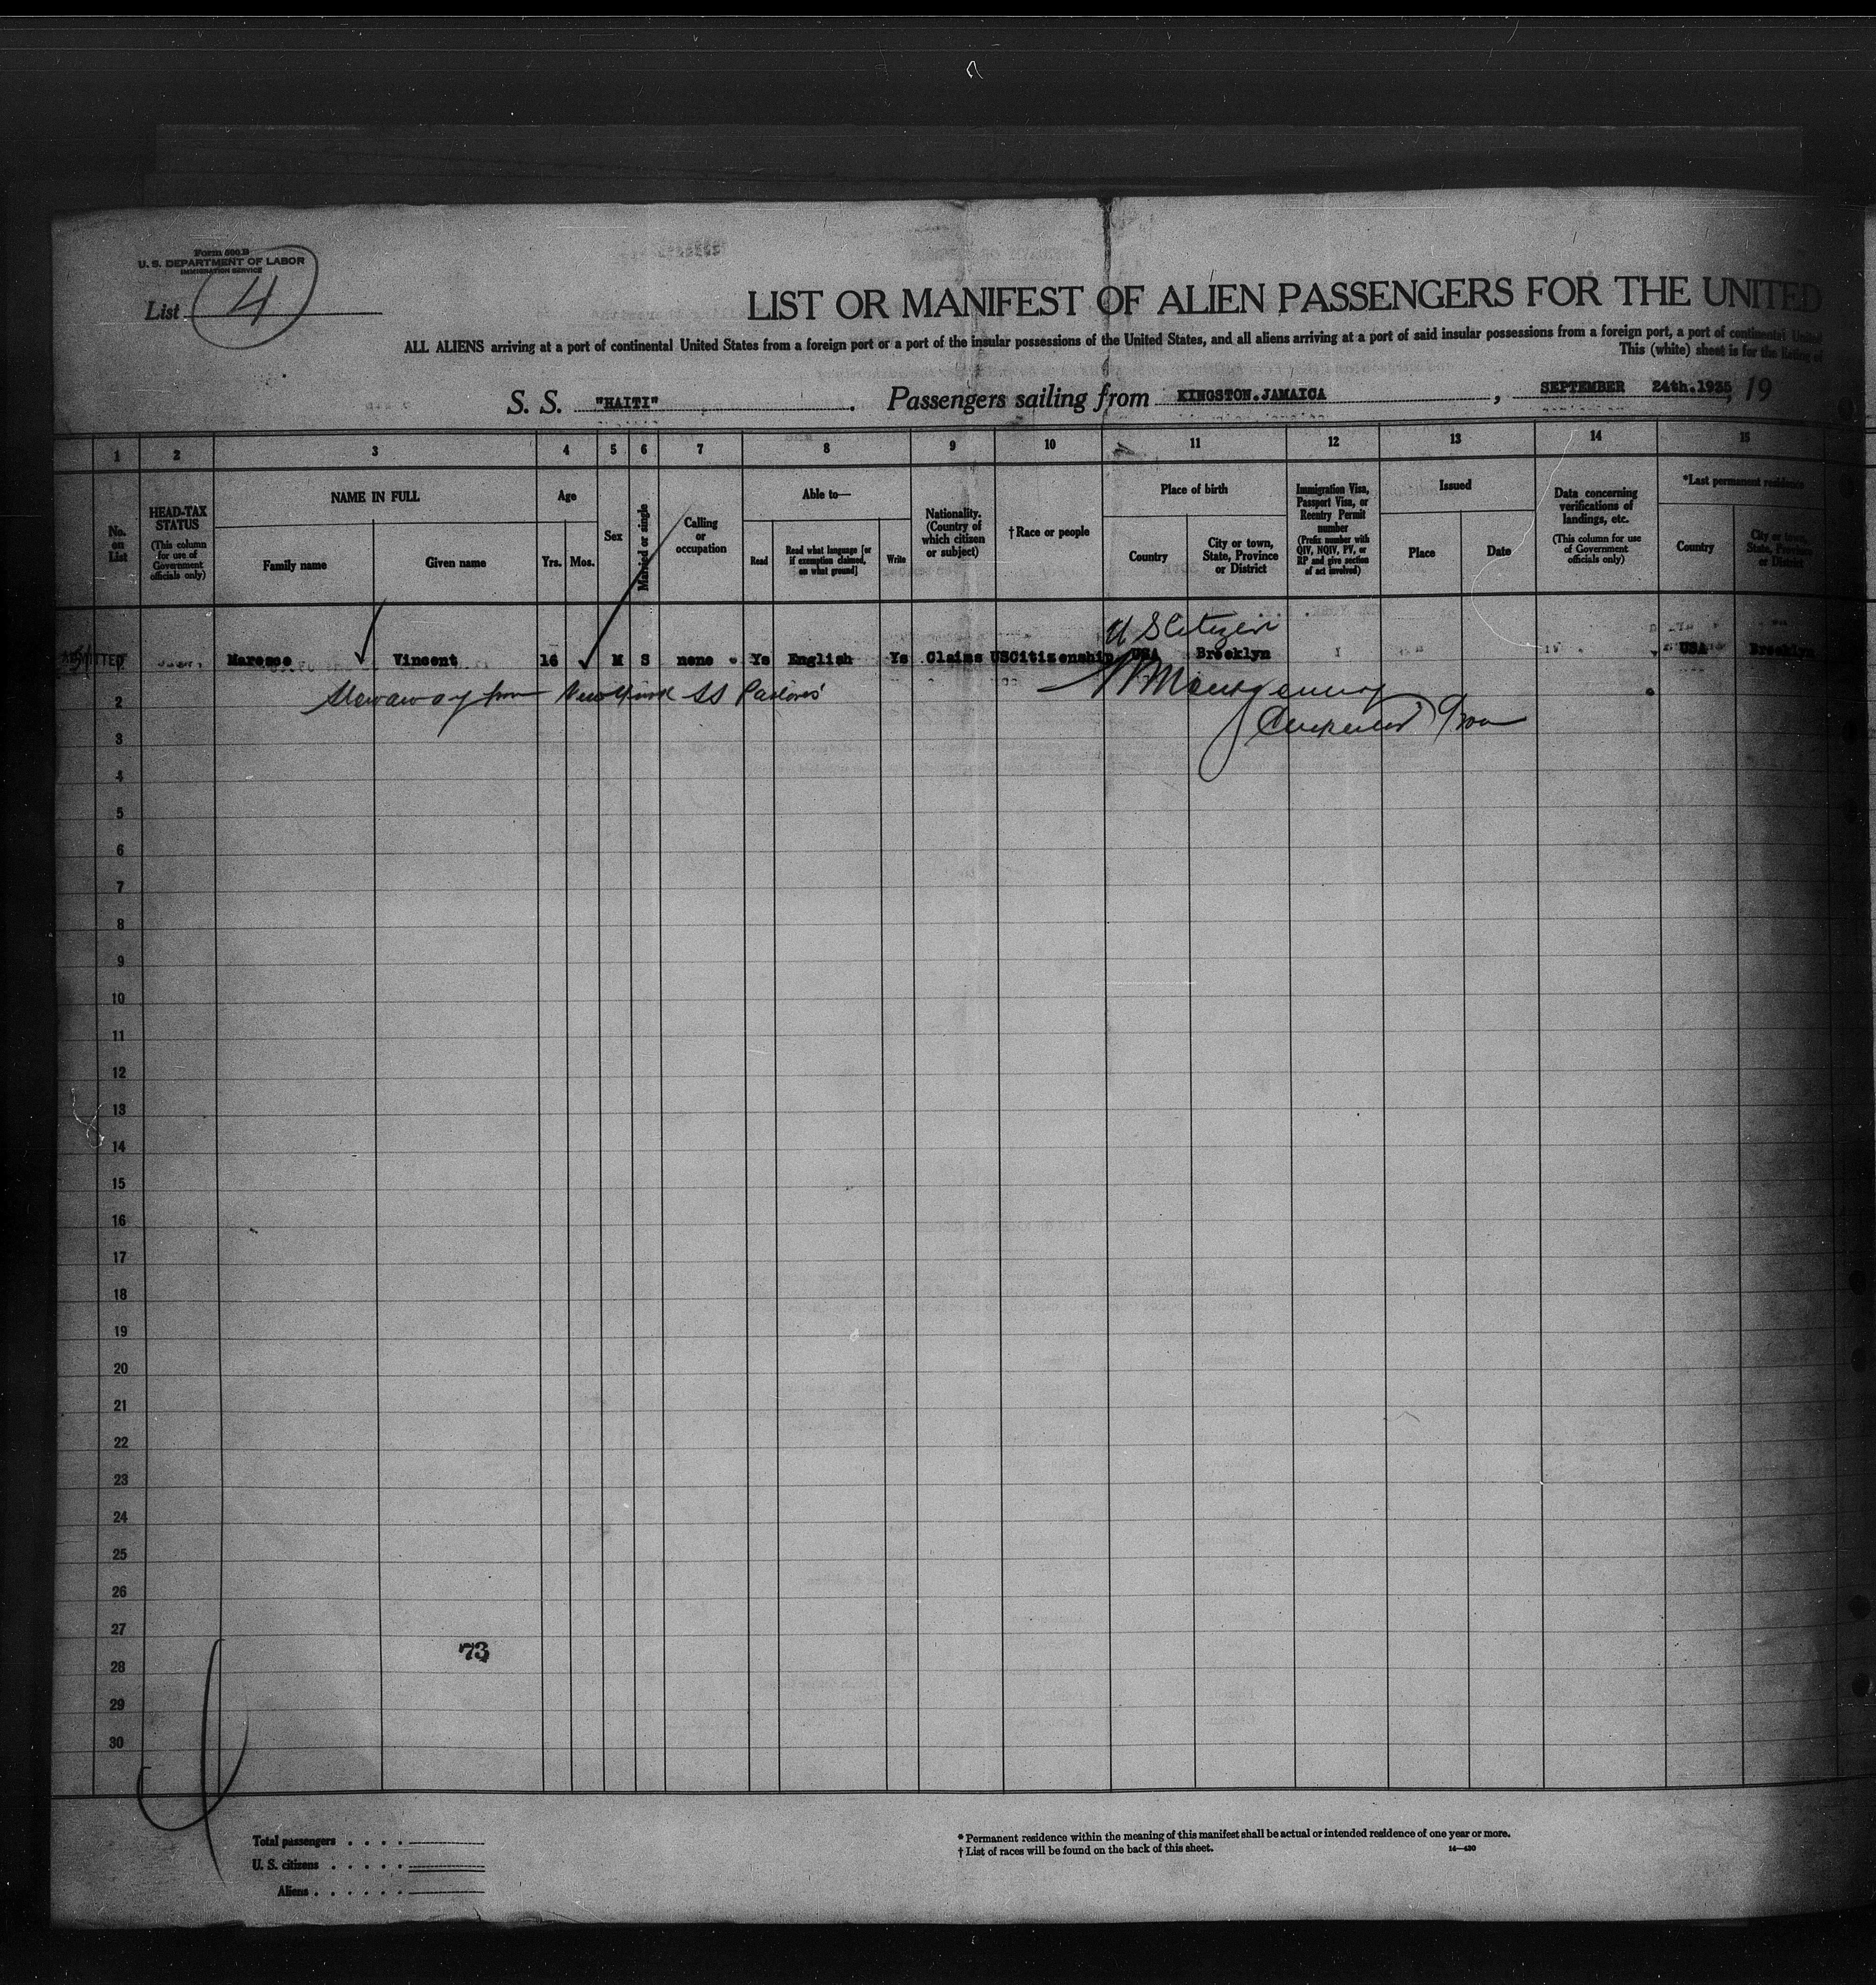 Form 500 B
U. S. DEPARTMENT OF LABOR
IMMIGRATION SERVICE
List 4
LIST OR MANIFEST OF ALIEN PASSENGERS FOR THE UNITED
ALL ALIENS arriving at a port of continental United States from a foreign port or a port of the insular possessions of the United States, and all aliens arriving at a port of said insular possessions from a foreign port, a port of continental United
This (white) sheet is for the listing of
S. S. "HAITI". Passengers sailing from KINGSTON.JAMAICA, SEPTEMBER 24th.1935, 19
1 2 3 4 5 6 7 8 9 10 11 12 13 14 15
No. on List
HEAD-TAX STATUS (This column for use of Government officials only)
NAME IN FULL
Family name
Given name
Age
Yrs. Mos.
Sex
Married or single
Calling or occupation
Able to—
Read
Read what language [or if exemption claimed, on what ground]
Write
Nationality. (Country of which citizen or subject)
†Race or people
Place of birth
Country
City or town, State, Province or District
Immigration Visa, Passport Visa, or Reentry Permit number (Prefix number with QIV, NQIV, PV, or RP and give section of act involved)
Issued
Place
Date
Data concerning verifications of landings, etc. (This column for use of Government officials only)
*Last permanent residence
Country
City or town, State, Province or District
U S Citizen
ADMITTED Maresco Vincent 16 M S none Ys English Ys Claims USCitizenship USA Brooklyn USA Brooklyn
2 Stowaway from New York SS Pastores
3
4
5
6
7
8
9
10
11
12
13
14
15
16
17
18
19
20
21
22
23
24
25
26
27
73
28
29
30
Total passengers . . . .
U. S. citizens . . . . .
Aliens . . . . . .
* Permanent residence within the meaning of this manifest shall be actual or intended residence of one year or more.
† List of races will be found on the back of this sheet. 14—430